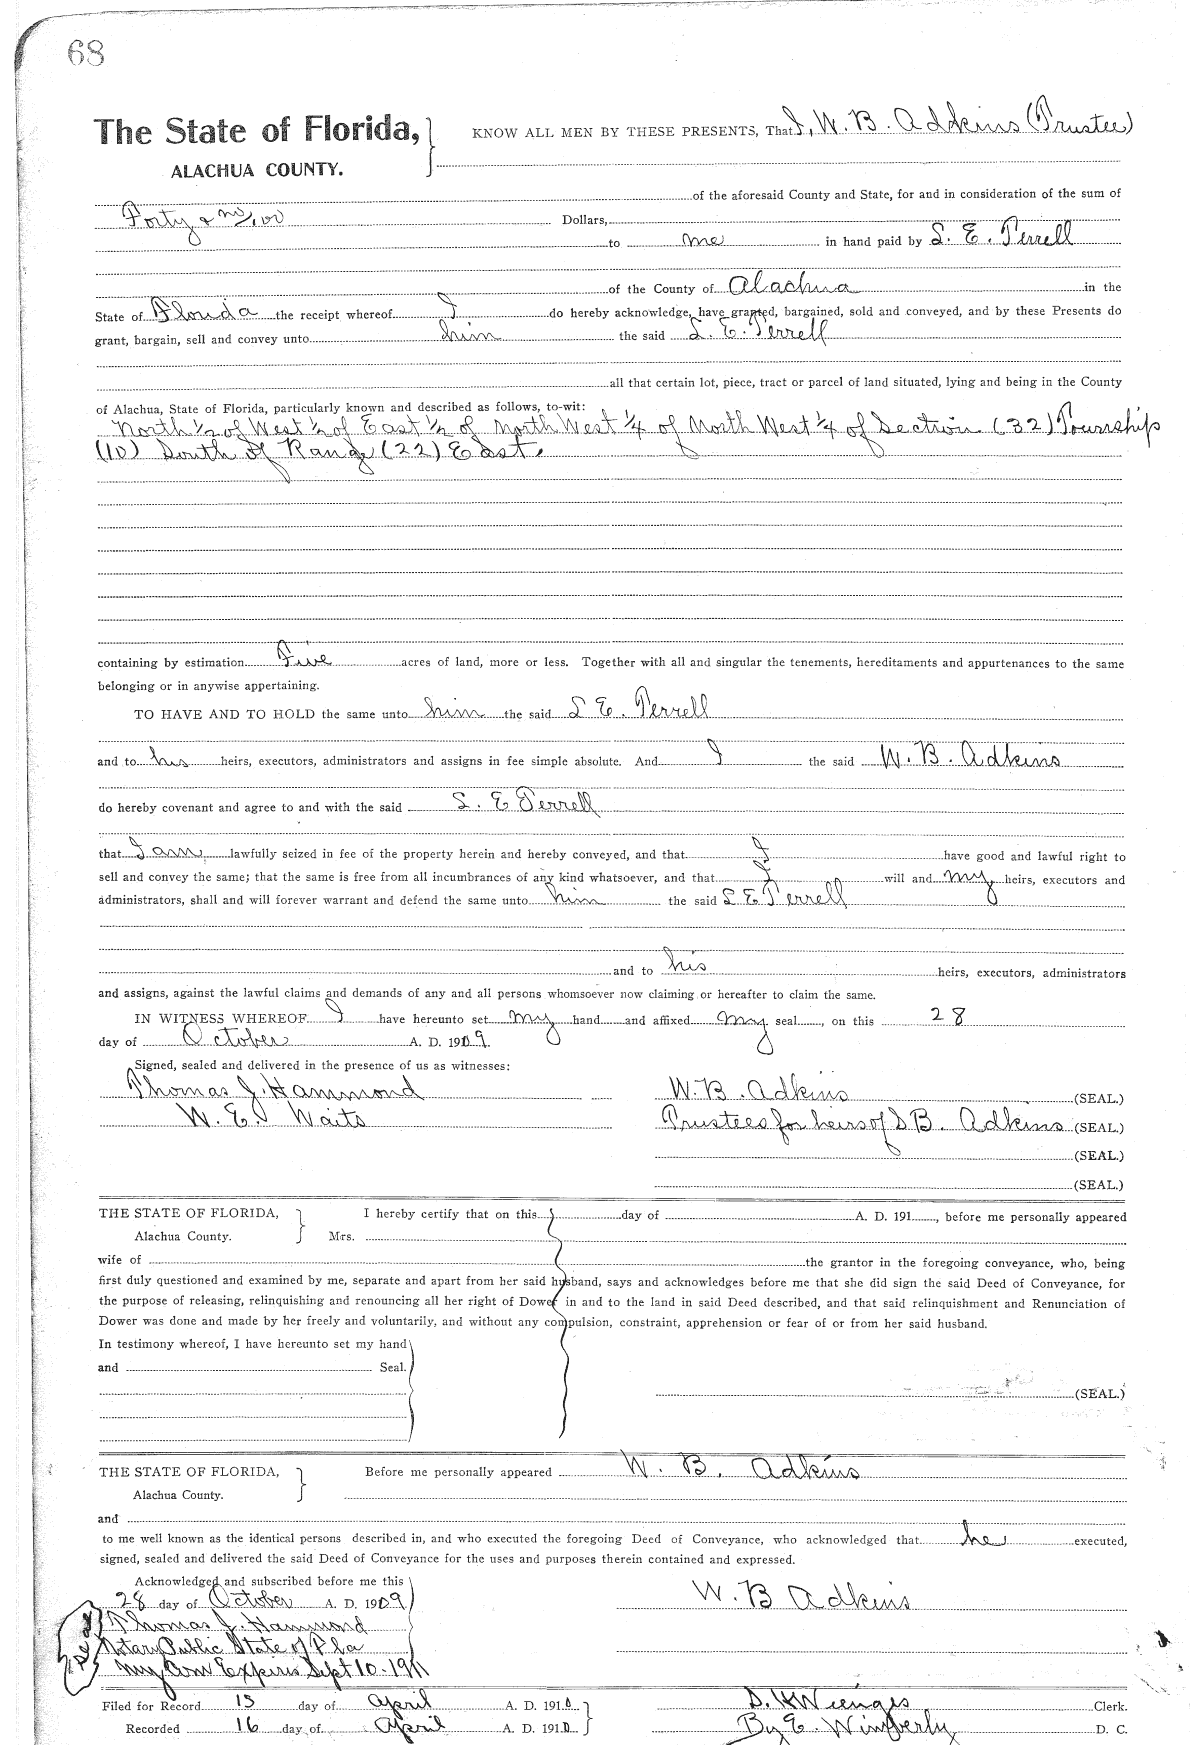 68
The State of Florida, KNOW ALL MEN BY THESE PRESENTS, That I, W. B. Adkins (Trustee)
ALACHUA COUNTY.
of the aforesaid County and State, for and in consideration of the sum of
Forty & no/100 Dollars,
to me in hand paid by S. E. Perrell
of the County of Alachua in the
State of Florida the receipt whereof I do hereby acknowledge, have granted, bargained, sold and conveyed, and by these Presents do
grant, bargain, sell and convey unto him the said S. E. Perrell
all that certain lot, piece, tract or parcel of land situated, lying and being in the County
of Alachua, State of Florida, particularly known and described as follows, to-wit:
North 1/2 of West 1/2 of East 1/2 of North West 1/4 of North West 1/4 of Section (32) Township
(10) South of Range (22) East.
containing by estimation Five acres of land, more or less. Together with all and singular the tenements, hereditaments and appurtenances to the same
belonging or in anywise appertaining.
TO HAVE AND TO HOLD the same unto him the said S E. Perrell
and to his heirs, executors, administrators and assigns in fee simple absolute. And I the said W. B. Adkins
do hereby covenant and agree to and with the said S. E Perrell
that I am lawfully seized in fee of the property herein and hereby conveyed, and that I have good and lawful right to
sell and convey the same; that the same is free from all incumbrances of any kind whatsoever, and that I will and my heirs, executors and
administrators, shall and will forever warrant and defend the same unto him the said S E Perrell
and to his heirs, executors, administrators
and assigns, against the lawful claims and demands of any and all persons whomsoever now claiming or hereafter to claim the same.
IN WITNESS WHEREOF I have hereunto set my hand and affixed my seal, on this 28
day of October A. D. 1909.
Signed, sealed and delivered in the presence of us as witnesses:
Thomas J. Hammond W. B. Adkins (SEAL.)
W. E. Waits Trustees for heirs of D B. Adkins (SEAL.)
(SEAL.)
(SEAL.)
THE STATE OF FLORIDA, I hereby certify that on this day of A. D. 191, before me personally appeared
Alachua County. Mrs.
wife of the grantor in the foregoing conveyance, who, being
first duly questioned and examined by me, separate and apart from her said husband, says and acknowledges before me that she did sign the said Deed of Conveyance, for
the purpose of releasing, relinquishing and renouncing all her right of Dower in and to the land in said Deed described, and that said relinquishment and Renunciation of
Dower was done and made by her freely and voluntarily, and without any compulsion, constraint, apprehension or fear of or from her said husband.
In testimony whereof, I have hereunto set my hand
and Seal.
(SEAL.)
THE STATE OF FLORIDA, Before me personally appeared W. B. Adkins
Alachua County.
and
to me well known as the identical persons described in, and who executed the foregoing Deed of Conveyance, who acknowledged that he executed,
signed, sealed and delivered the said Deed of Conveyance for the uses and purposes therein contained and expressed.
Acknowledged and subscribed before me this
28 day of October A. D. 1909 W. B Adkins
Thomas J. Hammond
Seal Notary Public State of Fla
My Com Expires Sept 10-1911
Filed for Record 15 day of April A. D. 1910 S. H Wienges Clerk.
Recorded 16 day of April A. D. 1910 By E. Wimberly D. C.